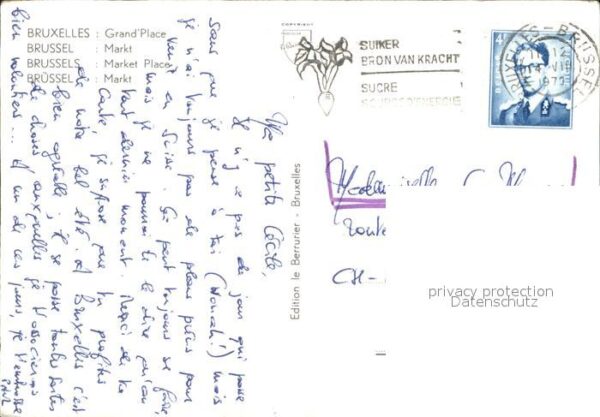 BRUXELLES : Grand'Place
BRUSSEL : Markt
BRUSSELS : Market Place
BRÜSSEL : Markt
COPYRIGHT
SUIKER
BRON VAN KRACHT
SUCRE
SOURCE D'ENERGIE
BRUXELLES - BRUSSEL
Edition le Berrurier - Bruxelles
Ma petite Cécile,
Il n'y a pas de jour qui passe
sans que je pense à toi (Wouah!) mais
je n'ai toujours pas de plans précis pour
venir en Suisse. Ça peut toujours se faire,
mais je ne pourrai te le dire qu'au
tout dernier moment. Merci de ta
carte, je suppose que tu profites
de notre bel été. A Bruxelles c'est
bien agréable ; il se passe toutes sortes
de choses, auxquelles je t'associerais
bien volontiers... A un de ces jours, je t'embrasse
Mademoiselle C.
Route
CH-
privacy protection
Datenschutz